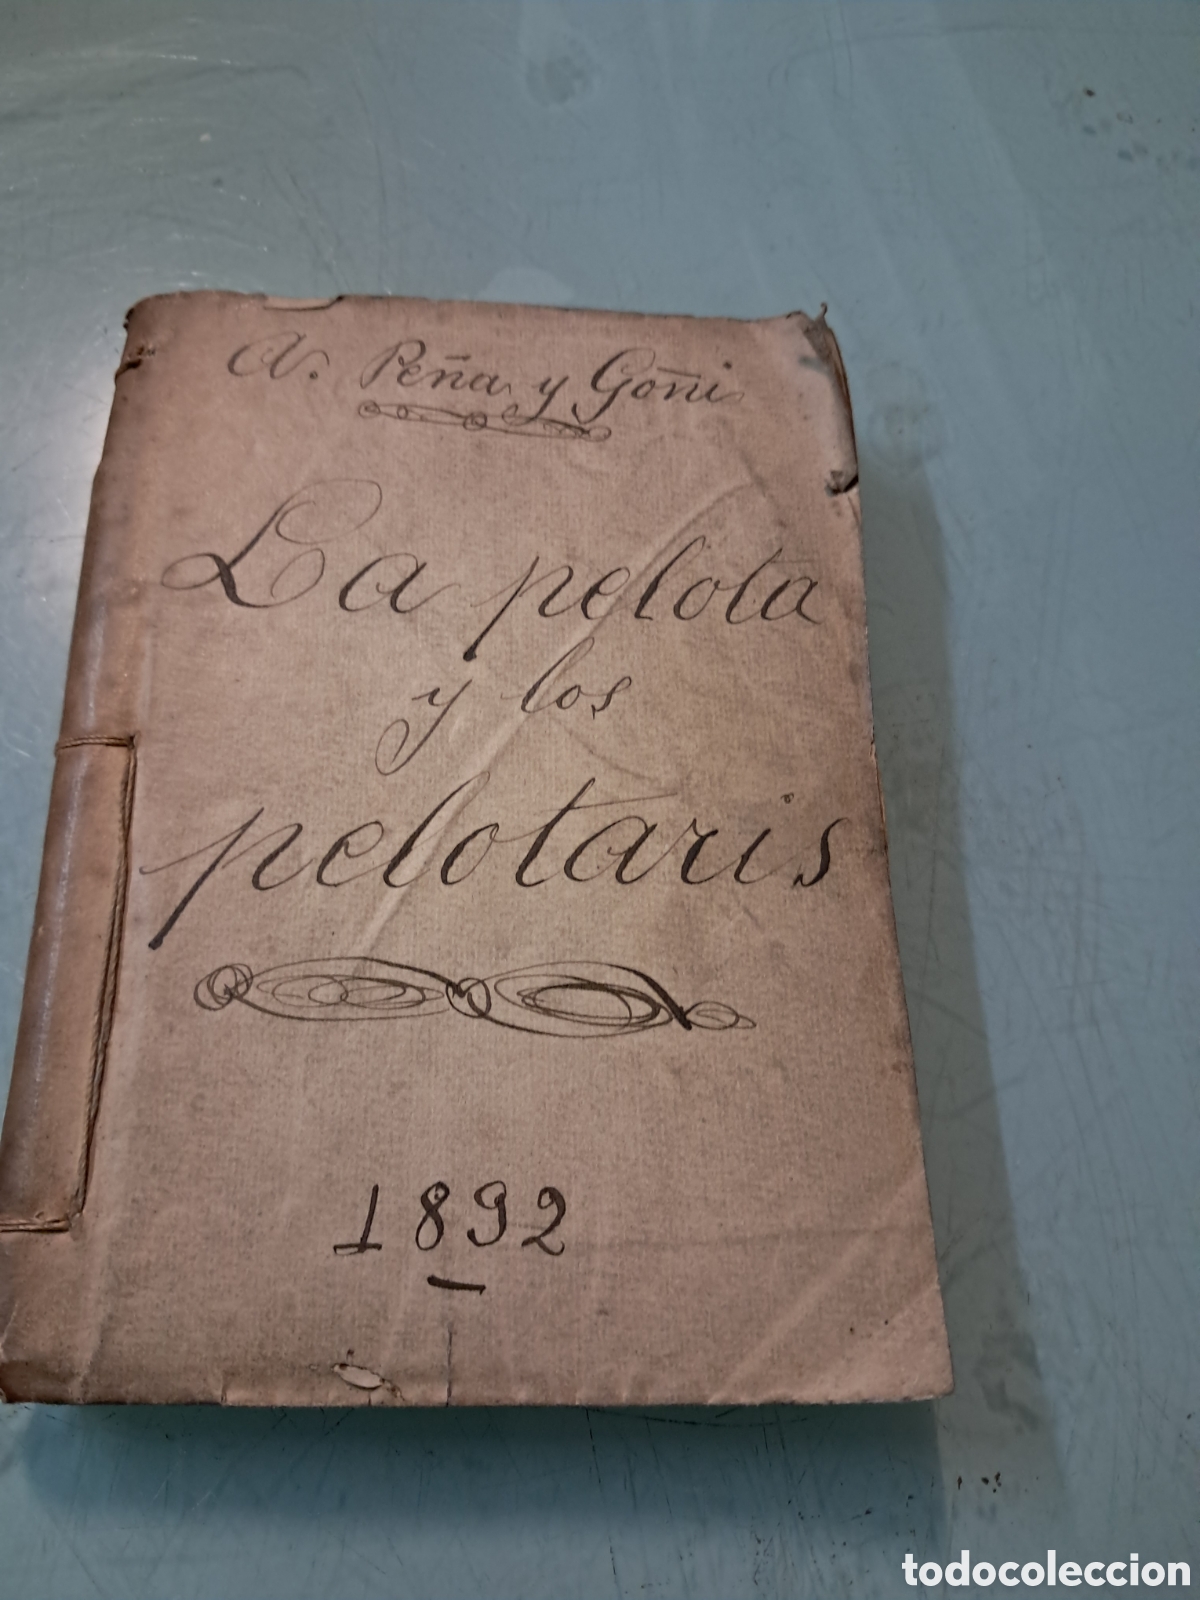 A. Peña y Goñi
La pelota
y los
pelotaris
1892
todocoleccion